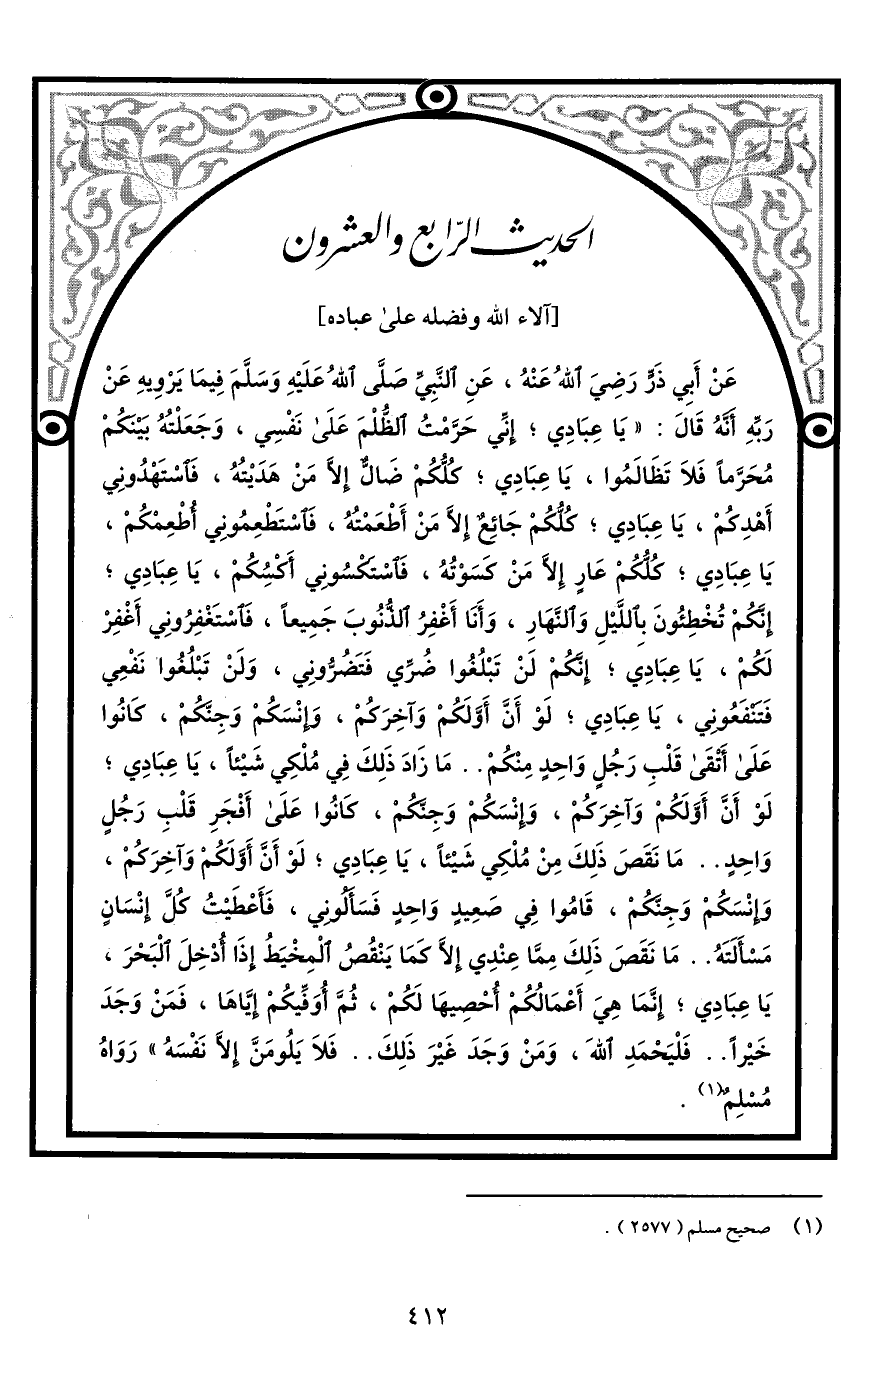 الحديث الرّابع والعشرون
[آلاء الله وفضله علىٰ عباده]
عَنْ أَبِي ذَرٍّ رَضِيَ ٱللهُ عَنْهُ ، عَنِ ٱلنَّبِيِّ صَلَّى ٱللهُ عَلَيْهِ وَسَلَّمَ فِيمَا يَرْوِيهِ عَنْ
رَبِّهِ أَنَّهُ قَالَ : « يَا عِبَادِي ؛ إِنِّي حَرَّمْتُ ٱلظُّلْمَ عَلَىٰ نَفْسِي ، وَجَعَلْتُهُ بَيْنَكُمْ
مُحَرَّماً فَلاَ تَظَالَمُوا ، يَا عِبَادِي ؛ كُلُّكُمْ ضَالٌّ إِلاَّ مَنْ هَدَيْتُهُ ، فَٱسْتَهْدُونِي
أَهْدِكُمْ ، يَا عِبَادِي ؛ كُلُّكُمْ جَائِعٌ إِلاَّ مَنْ أَطْعَمْتُهُ ، فَٱسْتَطْعِمُونِي أُطْعِمْكُمْ ،
يَا عِبَادِي ؛ كُلُّكُمْ عَارٍ إِلاَّ مَنْ كَسَوْتُهُ ، فَٱسْتَكْسُونِي أَكْسُكُمْ ، يَا عِبَادِي ؛
إِنَّكُمْ تُخْطِئُونَ بِٱللَّيْلِ وَٱلنَّهَارِ ، وَأَنَا أَغْفِرُ ٱلذُّنُوبَ جَمِيعاً ، فَٱسْتَغْفِرُونِي أَغْفِرْ
لَكُمْ ، يَا عِبَادِي ؛ إِنَّكُمْ لَنْ تَبْلُغُوا ضُرِّي فَتَضُرُّونِي ، وَلَنْ تَبْلُغُوا نَفْعِي
فَتَنْفَعُونِي ، يَا عِبَادِي ؛ لَوْ أَنَّ أَوَّلَكُمْ وَآخِرَكُمْ ، وَإِنْسَكُمْ وَجِنَّكُمْ ، كَانُوا
عَلَىٰ أَتْقَىٰ قَلْبِ رَجُلٍ وَاحِدٍ مِنْكُمْ.. مَا زَادَ ذَلِكَ فِي مُلْكِي شَيْئاً ، يَا عِبَادِي ؛
لَوْ أَنَّ أَوَّلَكُمْ وَآخِرَكُمْ ، وَإِنْسَكُمْ وَجِنَّكُمْ ، كَانُوا عَلَىٰ أَفْجَرِ قَلْبِ رَجُلٍ
وَاحِدٍ.. مَا نَقَصَ ذَلِكَ مِنْ مُلْكِي شَيْئاً ، يَا عِبَادِي ؛ لَوْ أَنَّ أَوَّلَكُمْ وَآخِرَكُمْ ،
وَإِنْسَكُمْ وَجِنَّكُمْ ، قَامُوا فِي صَعِيدٍ وَاحِدٍ فَسَأَلُونِي ، فَأَعْطَيْتُ كُلَّ إِنْسَانٍ
مَسْأَلَتَهُ.. مَا نَقَصَ ذَلِكَ مِمَّا عِنْدِي إِلاَّ كَمَا يَنْقُصُ ٱلْمِخْيَطُ إِذَا أُدْخِلَ ٱلْبَحْرَ ،
يَا عِبَادِي ؛ إِنَّمَا هِيَ أَعْمَالُكُمْ أُحْصِيهَا لَكُمْ ، ثُمَّ أُوَفِّيكُمْ إِيَّاهَا ، فَمَنْ وَجَدَ
خَيْراً.. فَلْيَحْمَدِ ٱللهَ ، وَمَنْ وَجَدَ غَيْرَ ذَلِكَ.. فَلاَ يَلُومَنَّ إِلاَّ نَفْسَهُ » رَوَاهُ
مُسْلِمٌ(١) .
(١) صحيح مسلم ( ٢٥٧٧ ) .
٤١٢